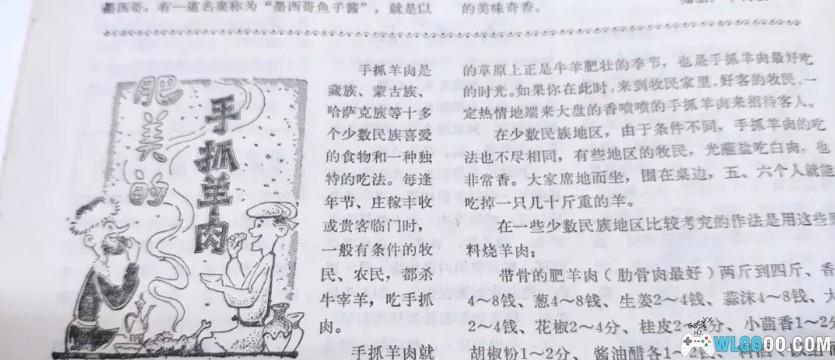 墨西哥，有一道名菜称为“墨西哥鱼子酱”，就是以
的美味奇香。
肥美的
手抓羊肉
手抓羊肉是
藏族、蒙古族、
哈萨克族等十多
个少数民族喜爱
的食物和一种独
特的吃法。每逢
年节、庄稼丰收
或贵客临门时，
一般有条件的牧
民、农民，都杀
牛宰羊，吃手抓
肉。
手抓羊肉就
的草原上正是牛羊肥壮的季节，也是手抓羊肉最好吃
的时光。如果你在此时，来到牧民家里，好客的牧民，一
定热情地端来大盘的香喷喷的手抓羊肉来招待客人。
在少数民族地区，由于条件不同，手抓羊肉的吃
法也不尽相同，有些地区的牧民，光蘸盐吃白肉，也
非常香。大家席地而坐，围在桌边，五、六个人就能
吃掉一只几十斤重的羊。
在一些少数民族地区比较考究的作法是用这些
料烧羊肉：
带骨的肥羊肉（肋骨肉最好）两斤到四斤、香
4～8钱、葱4～8钱、生姜2～4钱、蒜沫4～8钱、
2～4钱、花椒2～4分、桂皮2～4分、小茴香1～2
胡椒粉1～2分、酱油醋各1～2
WLGOOO.COM